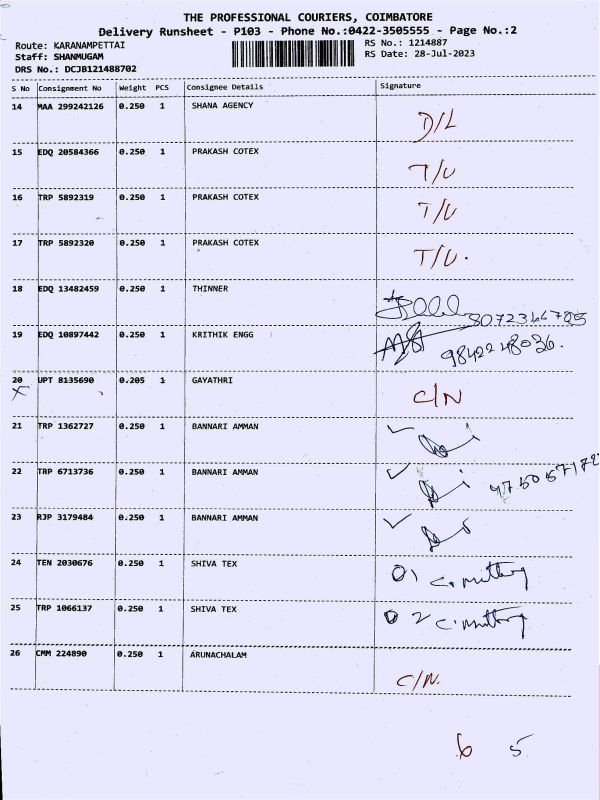 THE PROFESSIONAL COURIERS, COIMBATORE
Delivery Runsheet - P103 - Phone No.:0422-3505555 - Page No.:2
Route: KARANAMPETTAI
RS No.: 1214887
Staff: SHANMUGAM
RS Date: 28-Jul-2023
DRS No.: DCJB121488702
S No Consignment No Weight PCS Consignee Details Signature
14 MAA 299242126 0.250 1 SHANA AGENCY D/L
15 EDQ 20584366 0.250 1 PRAKASH COTEX T/U
16 TRP 5892319 0.250 1 PRAKASH COTEX T/U
17 TRP 5892320 0.250 1 PRAKASH COTEX T/U.
18 EDQ 13482459 0.250 1 THINNER
19 EDQ 10897442 0.250 1 KRITHIK ENGG 9842248036.
20 UPT 8135690 0.205 1 GAYATHRI C/N
21 TRP 1362727 0.250 1 BANNARI AMMAN
22 TRP 6713736 0.250 1 BANNARI AMMAN
23 RJP 3179484 0.250 1 BANNARI AMMAN
24 TEN 2030676 0.250 1 SHIVA TEX 01
25 TRP 1066137 0.250 1 SHIVA TEX 02
26 CMM 224890 0.250 1 ARUNACHALAM C/N.
6 5